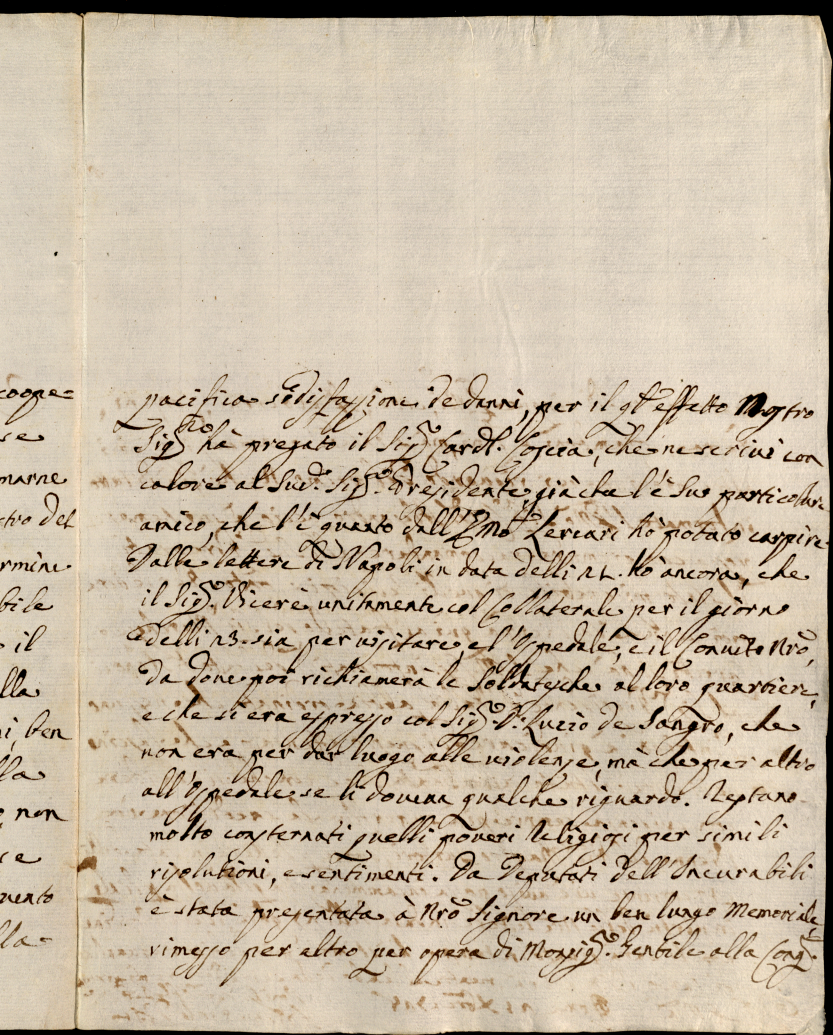 coope=
se
marne
tro del
rmine
bile
il
lla
i, ben
lla
non
se
uento
lla-
pacifica sodisfazione de danni, per il qle effetto Nostro
Sigre hà pregato il Sigr Cardl. Coscia, che ne scrivi con
calore al Sud.o Sigr. Presidente, già che l'è suo particolare
amico, che l'è quanto dall'Emo Lercari hò potuto carpire.
Dalle lettere di Napoli in data delli 21. hò ancora, che
il Sigr. Vicerè unitamente col Collaterale per il giorno
delli 23. sia per visitare, e l'Ospedale, e il Convito Nrō,
da dove poi richiamerà le soldatesche al loro quartiere,
e che si era espresso col Sigr. D. Lucio de Sangro, che
non era per dar luogo alle violenze, mà che per altro
all'Ospedale se li doveva qualche riguardo. Restano
molto consternati quelli poveri Religiosi per simili
risolutioni, e sentimenti. Da Deputati dell'Incurabili
è stata presentata à Nrō Signore un ben lungo Memoriale,
rimesso per altro per opera di Monsigr. Gentile alla Cong.e